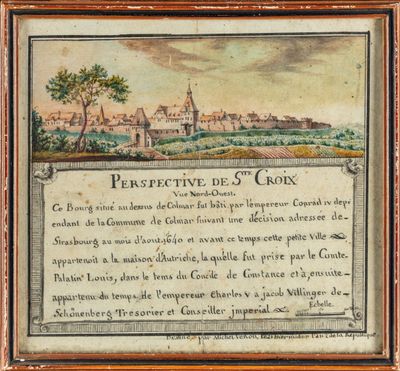 PERSPECTIVE DE Sᵀᴱ CROIX
Vue Nord-Ouest.
Ce Bourg situé au desous de Colmar fut bâti par l'empereur Conrad IV depi
endant de la Commune de Colmar suivant une décision adressée de
Strasbourg au mois d'aout 1640 et avant ce temps cette petite Ville
appartenoit a la maison d'Autriche, la quelle fut prise par le Comte
Palatin Louis, dans le tems du Concile de Constance et a ensuite
appartenu du temps de l'empereur Charles V a jacob Villinger de
Schönenberg Tresorier et Conseiller imperial
Echelle.
par Michel l'an 2 de la Republique